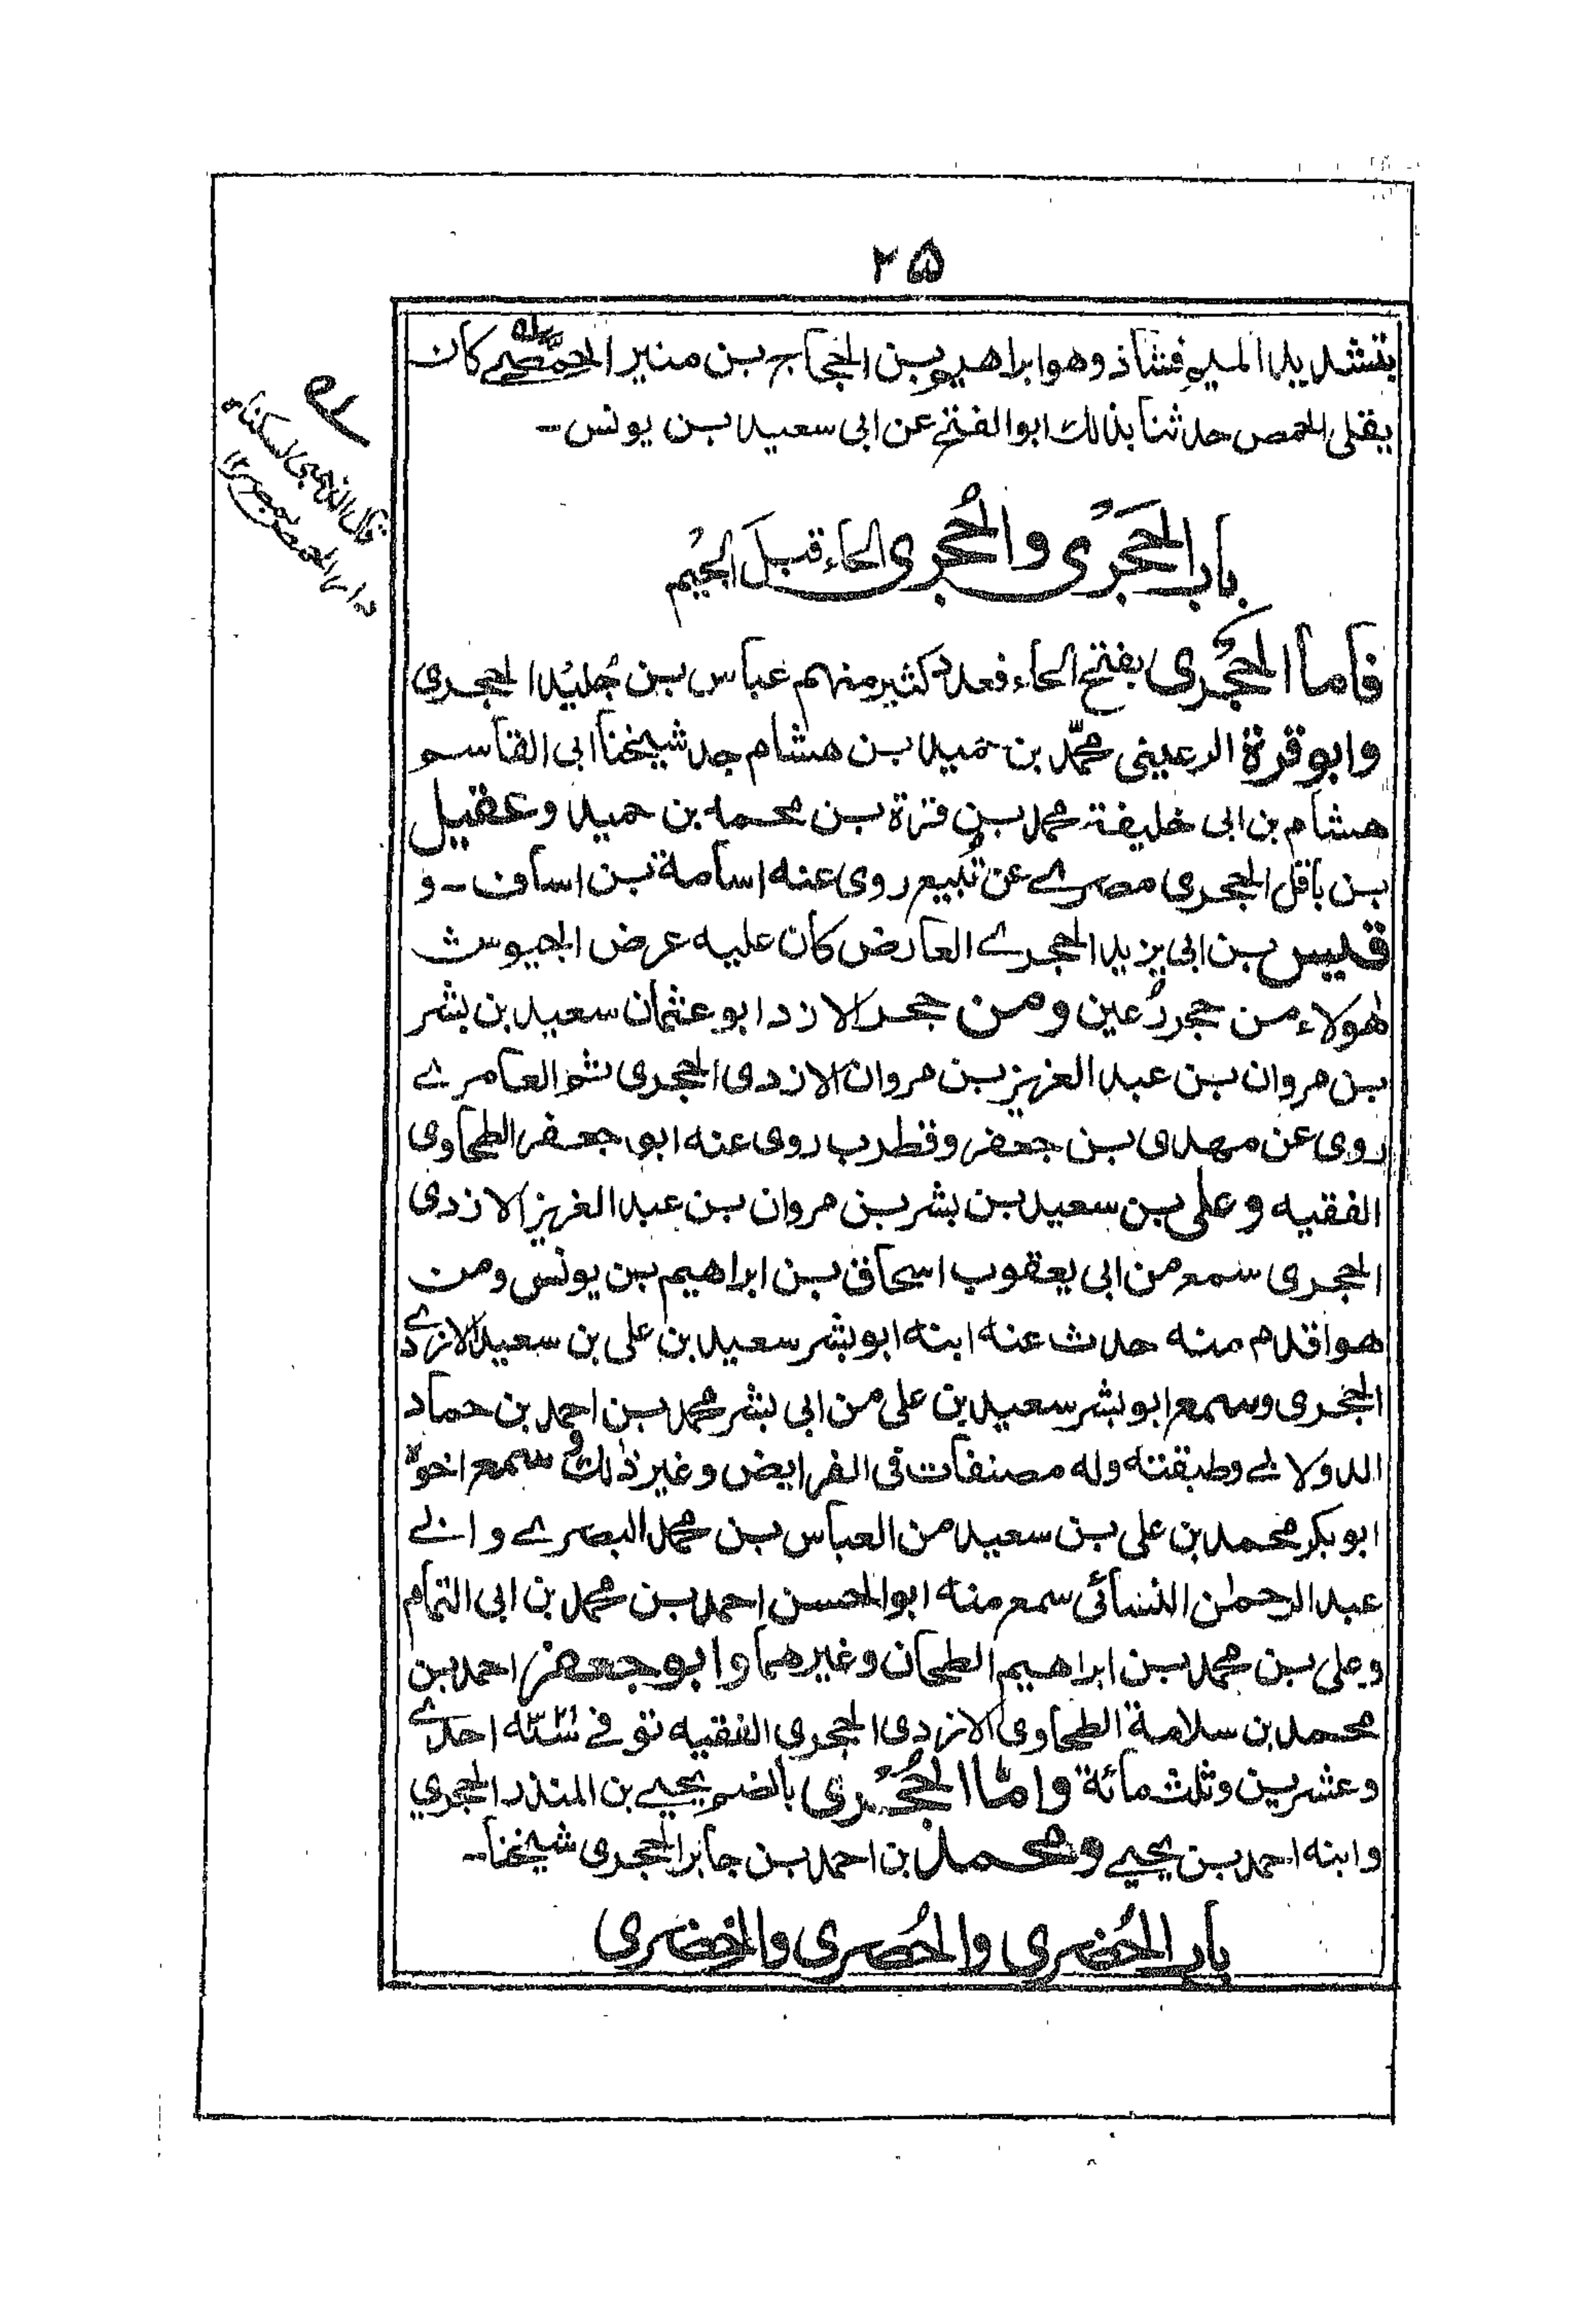 ۲۵
بتشديد الميم فشاذ وهو ابراهيم بن الحجاج بن منير الحمّصي كان
يقلى الحمص حدثنا بذالك ابو الفتح عن ابى سعيد بن يونس -
باب الحَجَرْى والحُجرى الحاء قبل الجيم
فاما الحَجْرى بفتح الحاء فعدد كثير منهم عباس بن جُليْد الحجرى
وابو قرة الرعينى محمّد بن حميد بن هشام جد شيخنا ابى القاسم
هشام بن ابى خليفة محمد بن قرة بن محمد بن حميد وعقيل
بن باقل الحجرى مصرے عن تُبيع روى عنه اسامة بن اساف - و
قيس بن ابى يزيد الحجرے العارض كان عليه عرض الجيوش
هٰولاء من حجر رُعين ومن حجر الازد ابو عثمان سعيد بن بشر
بن مروان بن عبد العزيز بن مروان الازدى الحجرى ثم العامرے
روى عن مهدى بن جعفر وقطرب روى عنه ابو جعفر الطحاوى
الفقيه وعلى بن سعيد بن بشر بن مروان بن عبد العزيز الازدى
الحجرى سمع من ابى يعقوب اسحاق بن ابراهيم بن يونس ومن
هو اقدم منه حدث عنه ابنه ابو بشر سعيد بن على بن سعيد الازدے
الحجرى وسمع ابو بشر سعيد بن على من ابى بشر محمد بن احمد بن حماد
الدولابے وطبقته وله مصنفات فى الفرايض وغير ذٰلك وسمع اخوه
ابو بكر محمد بن على بن سعيد من العباس بن محمد البصرے وابے
عبد الرحمٰن النسائى سمع منه ابو الحسن احمد بن محمد بن ابى التمام
وعلى بن محمد بن ابراهيم الطحان وغيرهما وابو جعفر احمد بن
محمد بن سلامة الطحاوى الازدى الحجرى الفقيه توفے سنة احدے
وعشرين وثلث مائة وامّا الحُجْرى بالضم يحيےٰ بن المنذر الحجري
وابنه احمد بن يحيے ومحمد بن احمد بن جابر الحجرى شيخنا -
باب الحُضرى والحُصرى والخضرى
قال الذهبى السكناه
دار الحمص بمصر ۱۲